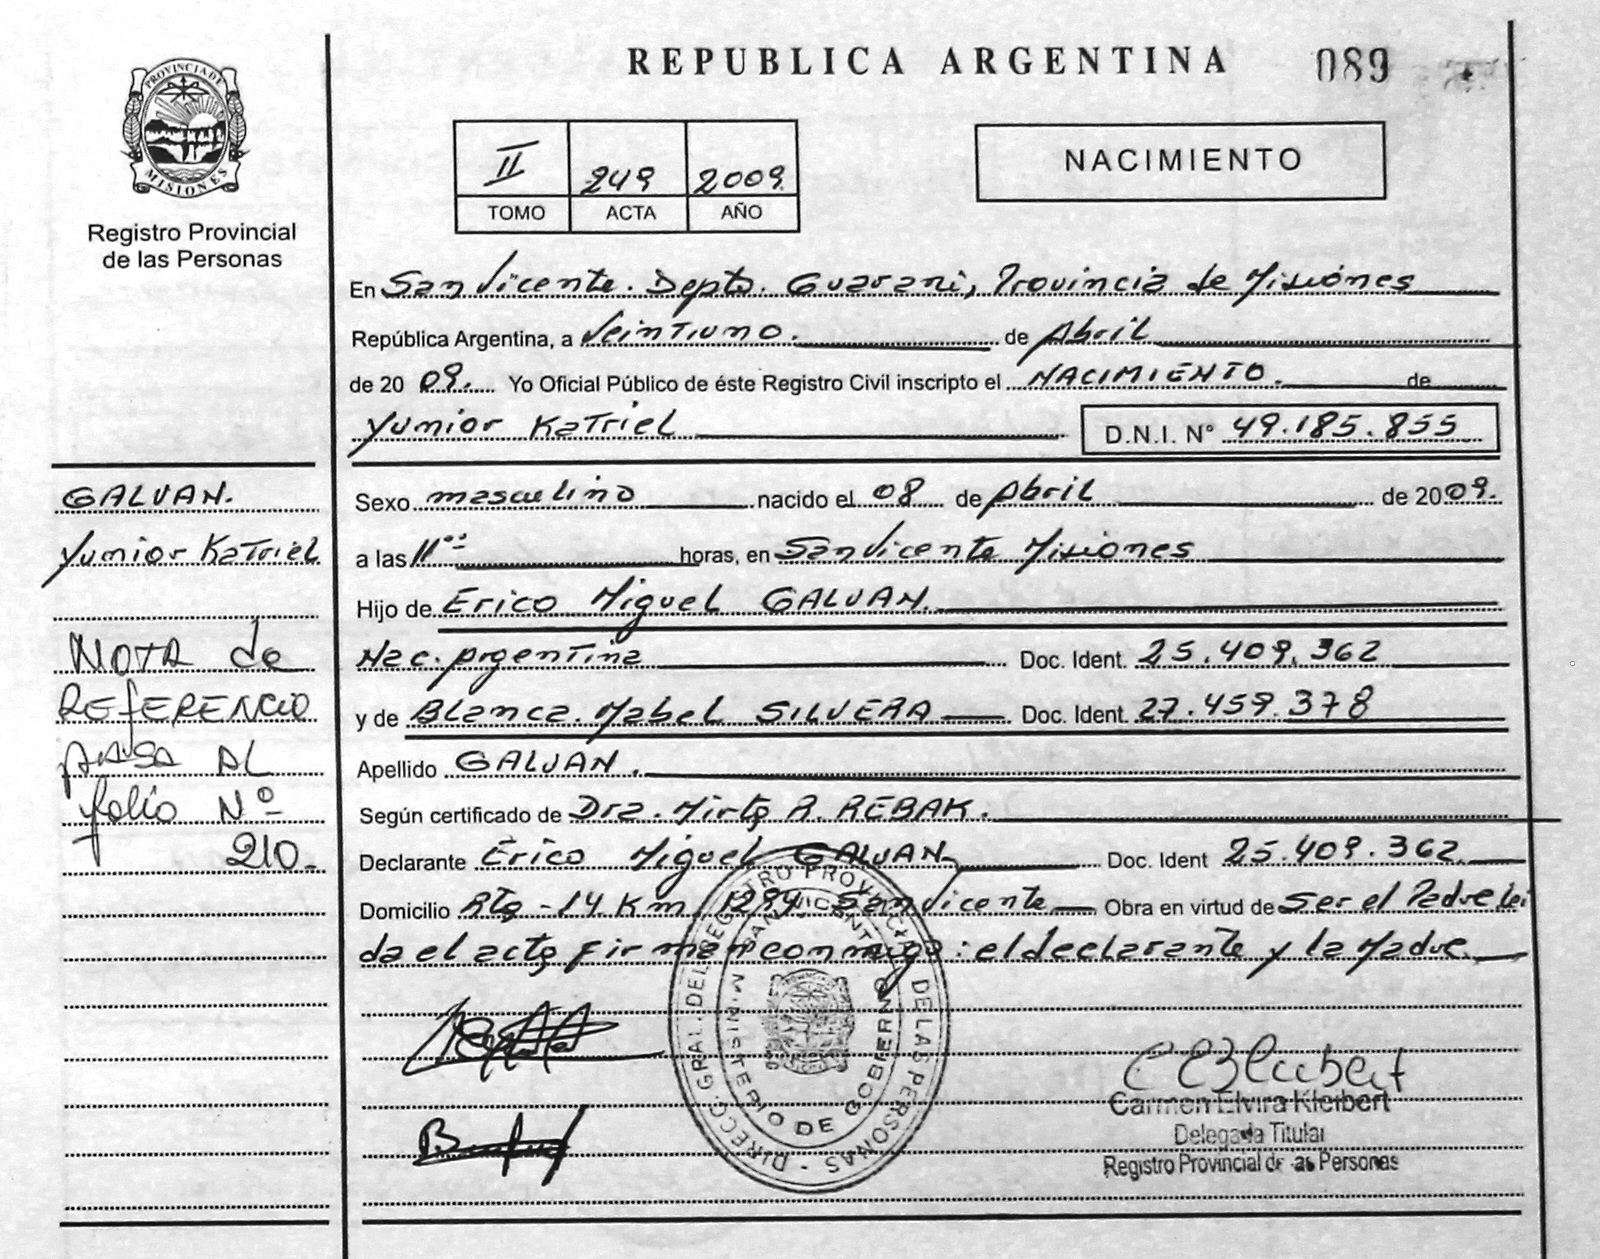 REPUBLICA ARGENTINA
089
PROVINCIA DE
MISIONES
Registro Provincial
de las Personas
II 249 2009
TOMO ACTA AÑO
NACIMIENTO
En San Vicente. Depto. Guarani, Provincia de Misiones
República Argentina, a Veintiuno. de Abril
de 20 09. Yo Oficial Público de éste Registro Civil inscripto el NACIMIENTO. de
Yumior Katriel D.N.I. N° 49.185.855
GALVAN.
Yumior Katriel
NOTA de
REfERENCIA
PASA AL
folio Nº
210.-
Sexo masculino nacido el 08 de Abril de 2009.
a las 11 horas, en San Vicente Misiones
Hijo de Erico Miguel GALVAN.
Nac. Argentina Doc. Ident. 25.409.362
y de Blanca Mabel SILVERA Doc. Ident. 27.459.378
Apellido GALVAN.
Según certificado de Dra. Mirta R. REBAK.
Declarante Erico Miguel GALVAN Doc. Ident 25.409.362
Domicilio Rta - 14 Km 1294 San Vicente Obra en virtud de Ser el Padre Lei
da el acta firman conmigo: el declarante y la Madre.
DIRECC. GRAL. DEL REGISTRO PROVINCIAL DE LAS PERSONAS -
MINISTERIO DE GOBIERNO
SAN VICENTE
Carmen Elvira Kleibert
Delegada Titular
Registro Provincial de las Personas